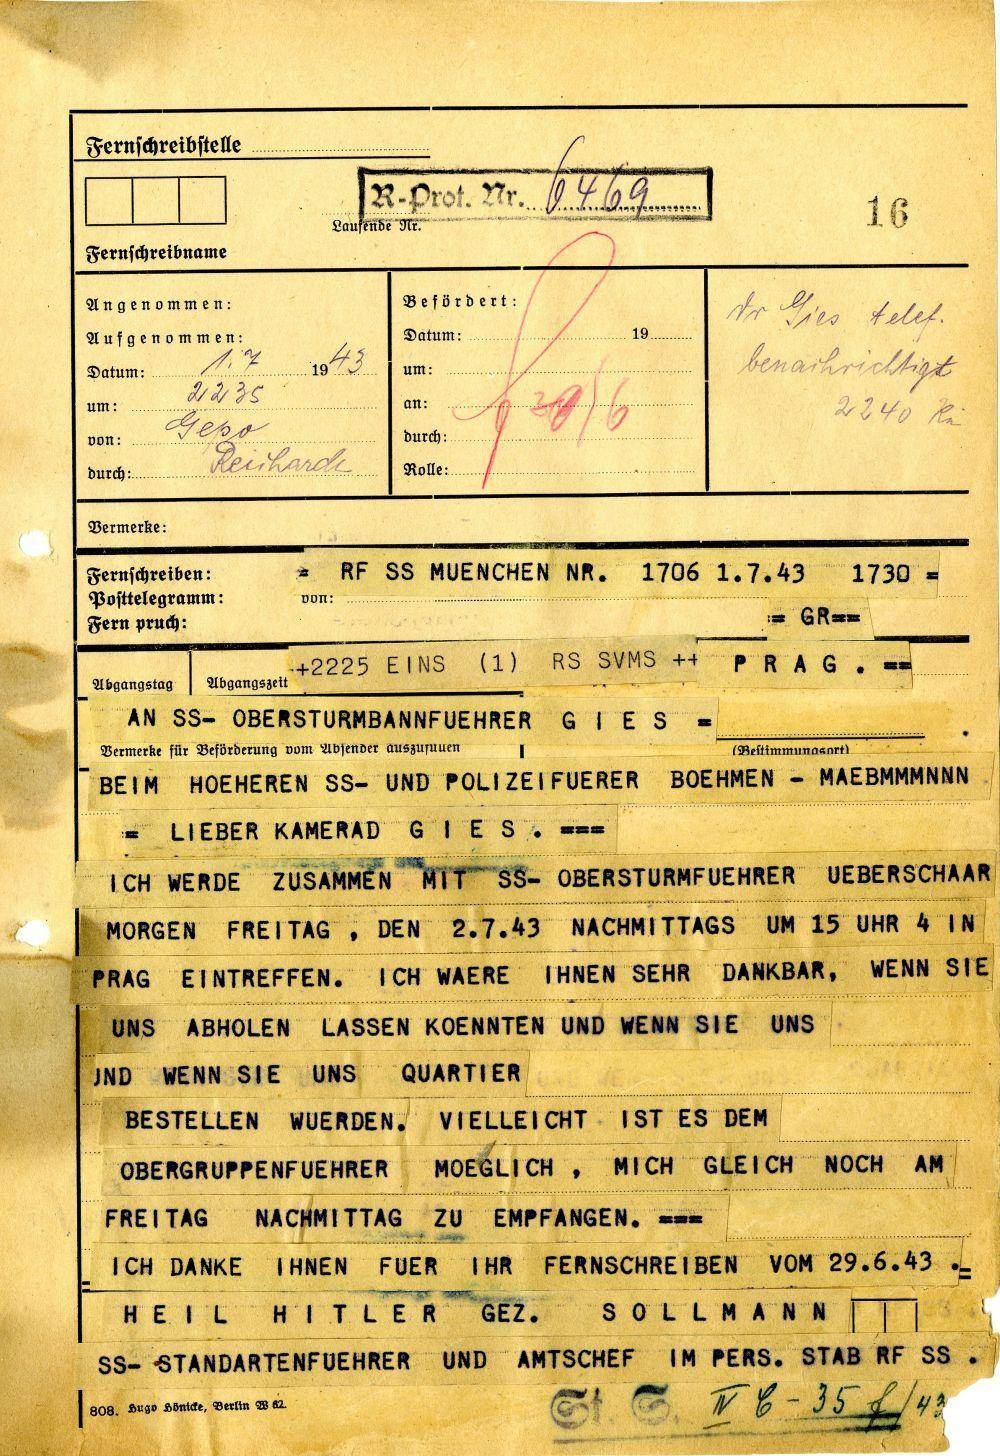 Fernschreibstelle
R-Prot. Nr. 6469
Laufende Nr.
16
Fernschreibname
Angenommen:
Aufgenommen:
Datum: 1.7 1943
um: 2235
von: Gepo
durch:
Befördert:
Datum: 19
um:
an:
durch:
Rolle:
Dr Gies telef.
benachrichtigt
2240
Vermerke:
Fernschreiben:
Posttelegramm:
Fern pruch:
von:
= RF SS MUENCHEN NR. 1706 1.7.43 1730 =
= GR==
Abgangstag
Abgangszeit
+2225 EINS (1) RS SVMS ++ P R A G . ==
AN SS- OBERSTURMBANNFUEHRER G I E S =
Vermerke für Beförderung vom Absender auszufüllen
(Bestimmungsort)
BEIM HOEHEREN SS- UND POLIZEIFUERER BOEHMEN - MAEBMMMNNN
= LIEBER KAMERAD G I E S . ===
ICH WERDE ZUSAMMEN MIT SS- OBERSTURMFUEHRER UEBERSCHAAR
MORGEN FREITAG , DEN 2.7.43 NACHMITTAGS UM 15 UHR 4 IN
PRAG EINTREFFEN. ICH WAERE IHNEN SEHR DANKBAR, WENN SIE
UNS ABHOLEN LASSEN KOENNTEN UND WENN SIE UNS
UND WENN SIE UNS QUARTIER
BESTELLEN WUERDEN. VIELLEICHT IST ES DEM
OBERGRUPPENFUEHRER MOEGLICH , MICH GLEICH NOCH AM
FREITAG NACHMITTAG ZU EMPFANGEN. ===
ICH DANKE IHNEN FUER IHR FERNSCHREIBEN VOM 29.6.43 .=
H E I L H I T L E R GEZ. S O L L M A N N
SS- STANDARTENFUEHRER UND AMTSCHEF IM PERS. STAB RF SS .
808. Hugo Hönicke, Berlin W 62.
St. S. IV C - 35 f/43